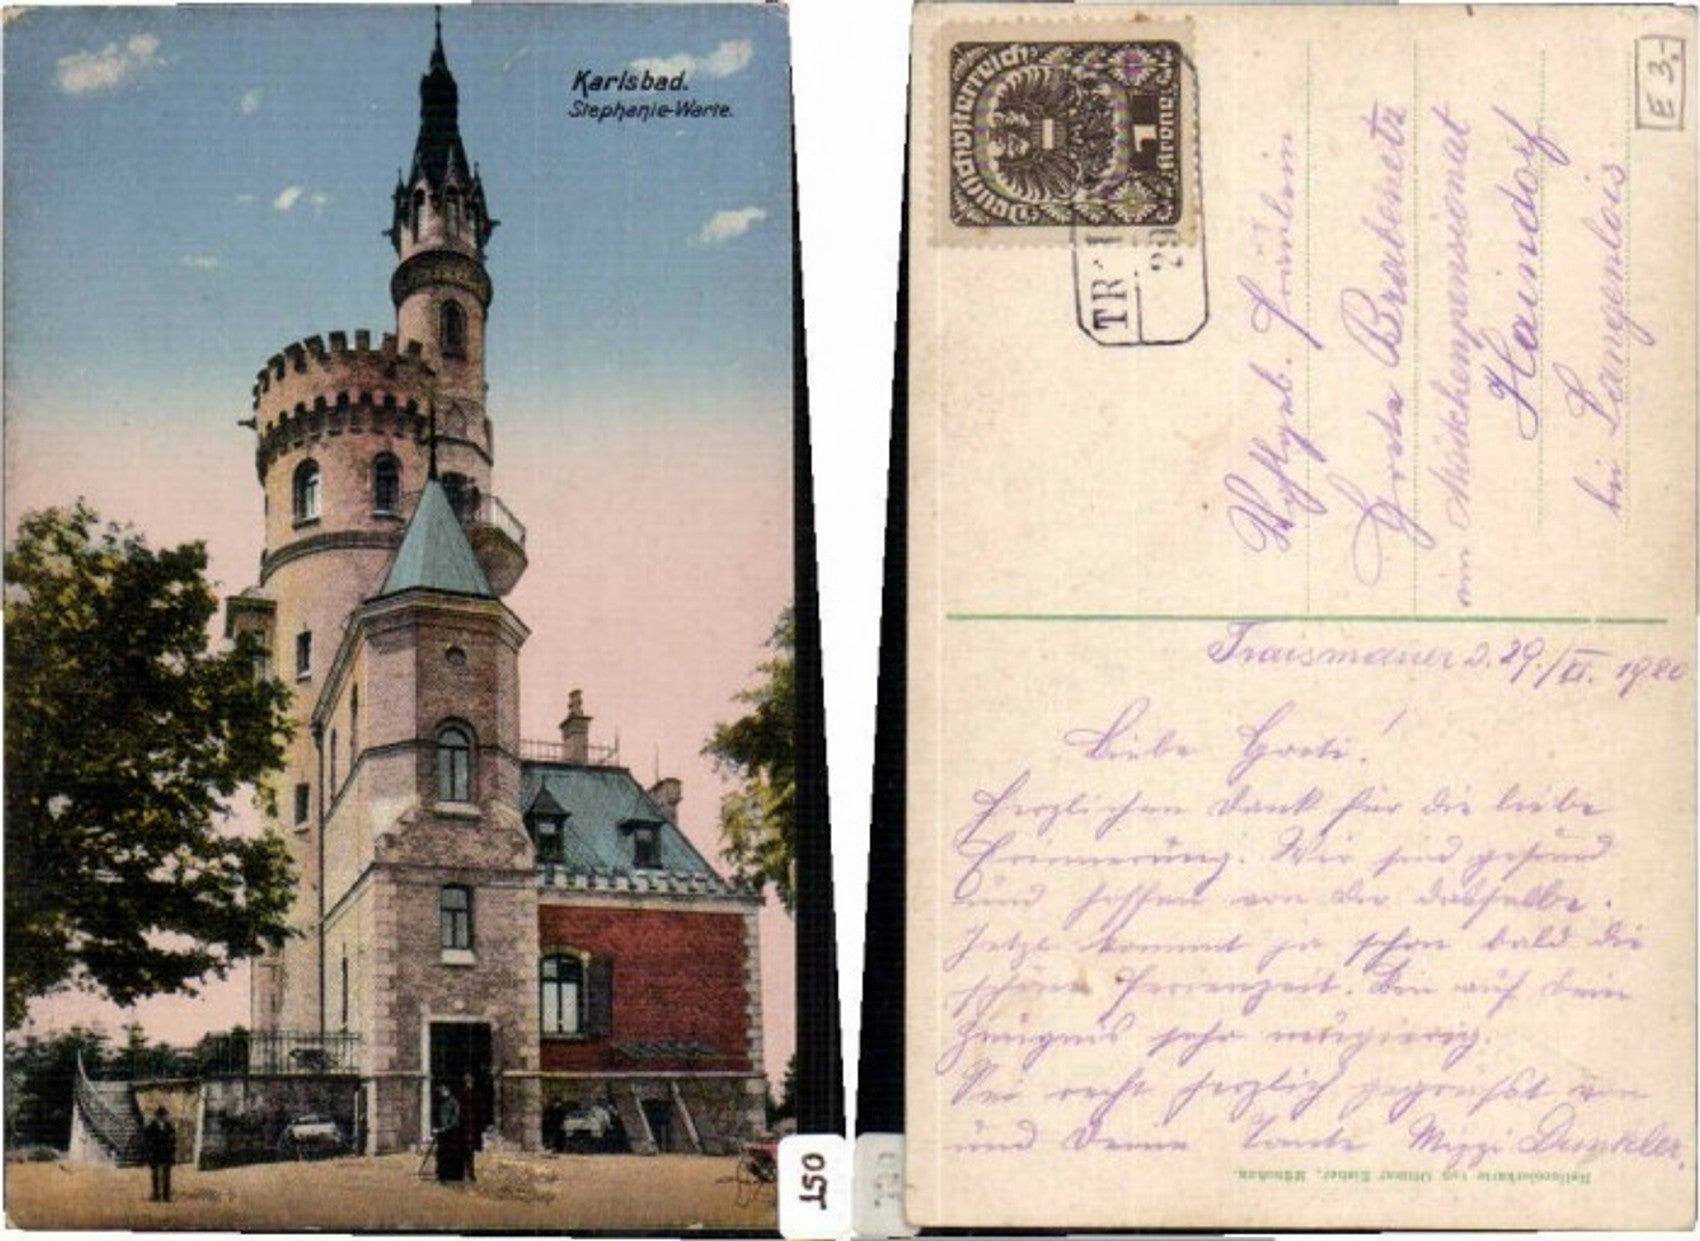 Karlsbad.
Stephanie-Warte.
150
Deutschösterreich
1
Krone
TR
29
E 3.-
Wohlgeb. Fräulein
Greta Brabenetz
im Mädchenpensionat
Haindorf
bei Langenlois
Traismauer d. 29./XI. 1920
Liebe Greti!
Herzlichen Dank für die liebe
Erinnerung. Wir sind gesund
und hoffen von dir dasselbe.
Jetzt kommt ja schon bald die
schöne Ferienzeit. Bin auf dein
Zeugnis sehr neugierig.
Sei recht herzlich gegrüßt von
und Deine Tante Mizzi Dunkler.
Heliocolorkarte von Ottmar Zieher, München.